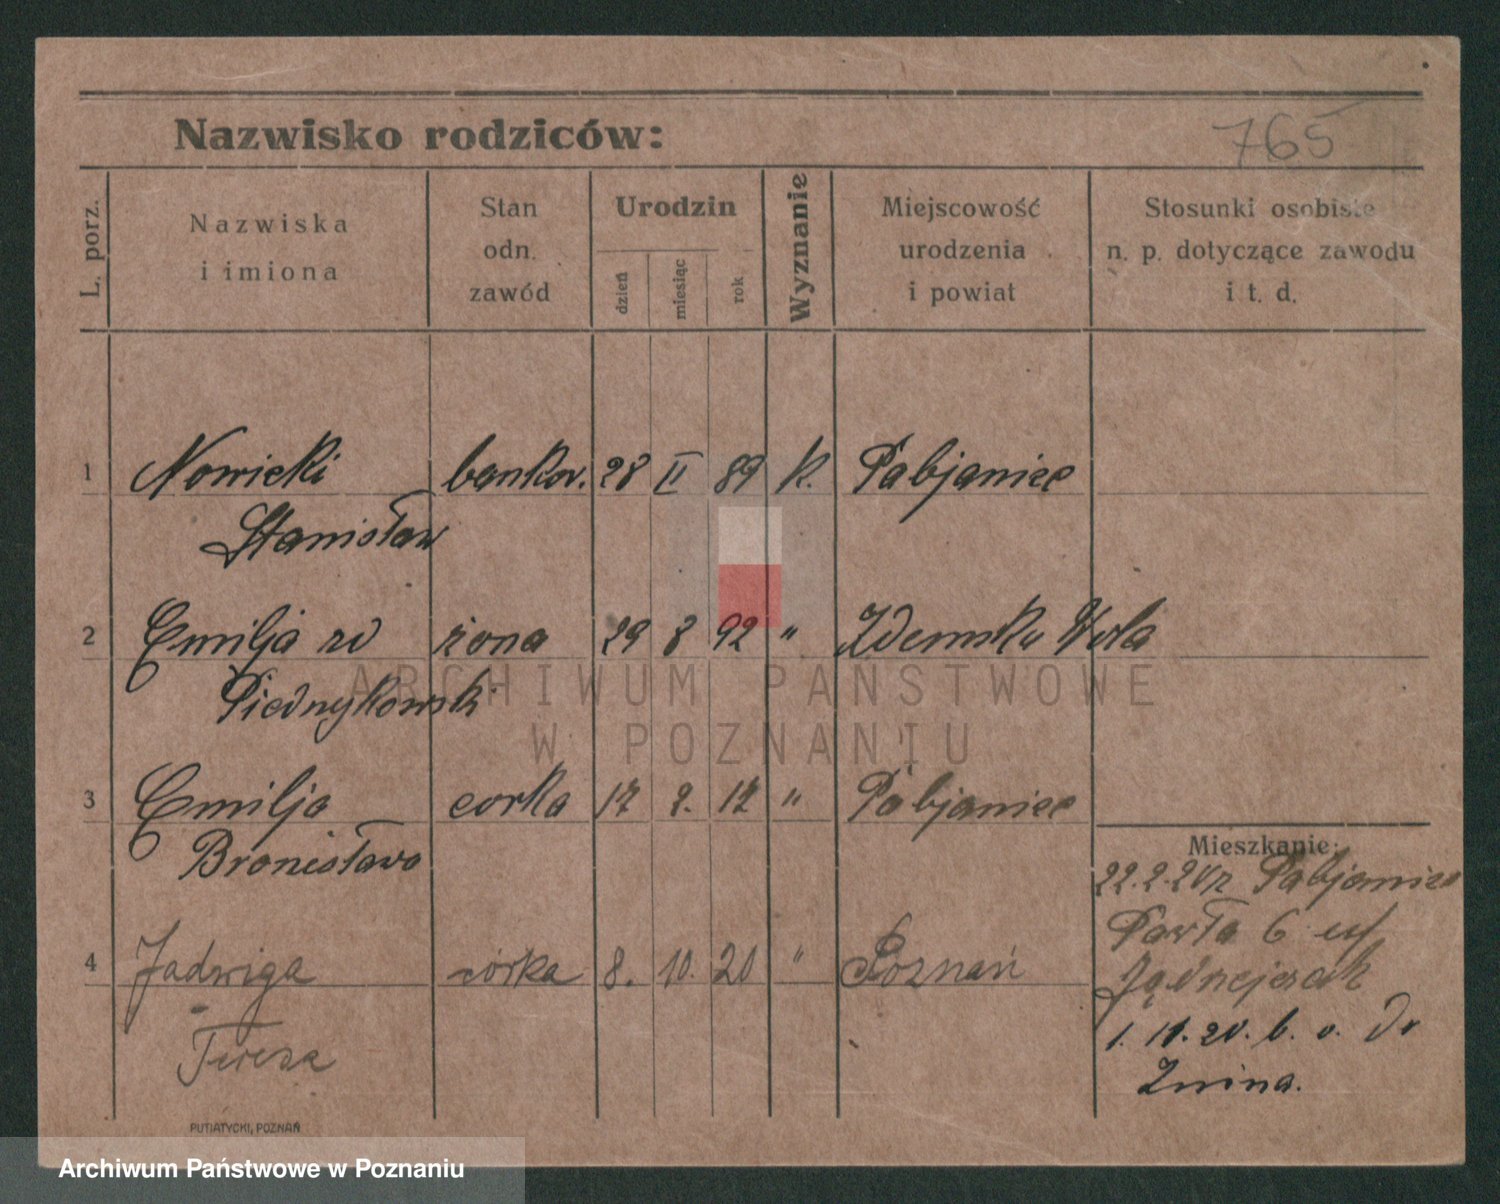 Nazwisko rodziców:
765
L. porz.
Nazwiska
i imiona
Stan
odn.
zawód
Urodzin
dzień
miesiąc
rok
Wyznanie
Miejscowość
urodzenia
i powiat
Stosunki osobiste
n. p. dotyczące zawodu
i t. d.
1 Nowicki bankow. 28 II 89 k. Pabjanice
Stanisław
2 Emilja zd żona 29 8 92 " Zdunska Wola
3 Emilja corka 17 2. 17 " Pabjanice
Bronisława
Mieszkanie:
22.2.20 z Pabjanice
Pawła 6
4 Jadwiga córka 8. 10. 20 " Poznań
Teresa
1. 11. 20. b. o. do
Znina.
PUTIATYCKI, POZNAŃ
ARCHIWUM PAŃSTWOWE
W POZNANIU
Archiwum Państwowe w Poznaniu